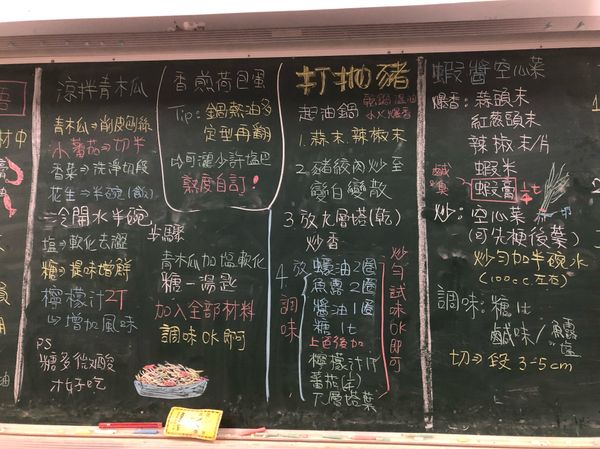 涼拌青木瓜
青木瓜⇒削皮刨絲
小蕃茄⇒切半
香菜⇒洗淨切段
花生⇒半碗(飯)
冷開水半碗
鹽⇒軟化去澀
糖⇒提味增鮮
檸檬汁2T
增加風味
PS
糖多微酸
才好吃
步驟
青木瓜加鹽軟化
糖一湯匙
加入全部材料
調味OK即可
香煎荷包蛋
Tip: 鍋熱油多
定型再翻
可灑少許塩巴
熟度自訂!
打拋豬
起油鍋
乾鍋溫油
小火爆香
1.蒜末.辣椒末
2.豬絞肉炒至
變白變散
3.放九層塔(乾)
炒香
4.放調味
蠔油2圈
魚露2圈
醬油1圈
糖 1t
上色後加
檸檬汁1T
蕃茄
九層塔葉
炒勻試味OK即可
蝦醬空心菜
爆香: 蒜頭末
紅葱頭末
辣椒末/片
蝦米
鹹
蝦膏 1/4t
炒: 空心菜
(可先梗後葉)
炒勻加半碗水
(100c.c.左右)
調味: 糖1t
鹹味/魚露
塩
切⇒段 3-5cm